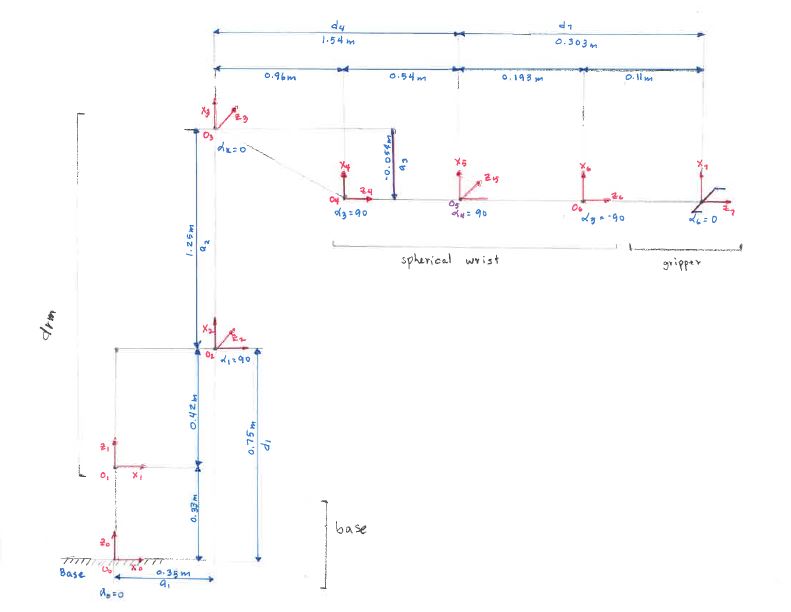 d4
1.54m
d7
0.303m
0.96m
0.54m
0.193m
0.11m
X3
Z3
O3
α2=0
-0.054m
a3
X4
Z4
O4
α3=90
X5
Z5
O5
α4=90
X6
Z6
O6
α5=-90
X7
Z7
α6=0
spherical wrist
gripper
1.25m
a2
arm
X2
Z2
O2
α1=90
0.42m
0.75m
d1
Z1
O1
X1
0.33m
base
Z0
O0
X0
Base
0.35m
a1
α0=0